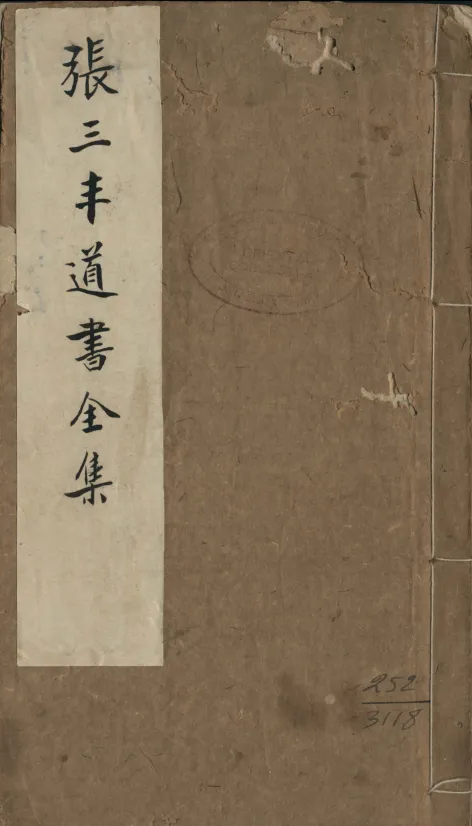 張三丰道書全集
252
3118